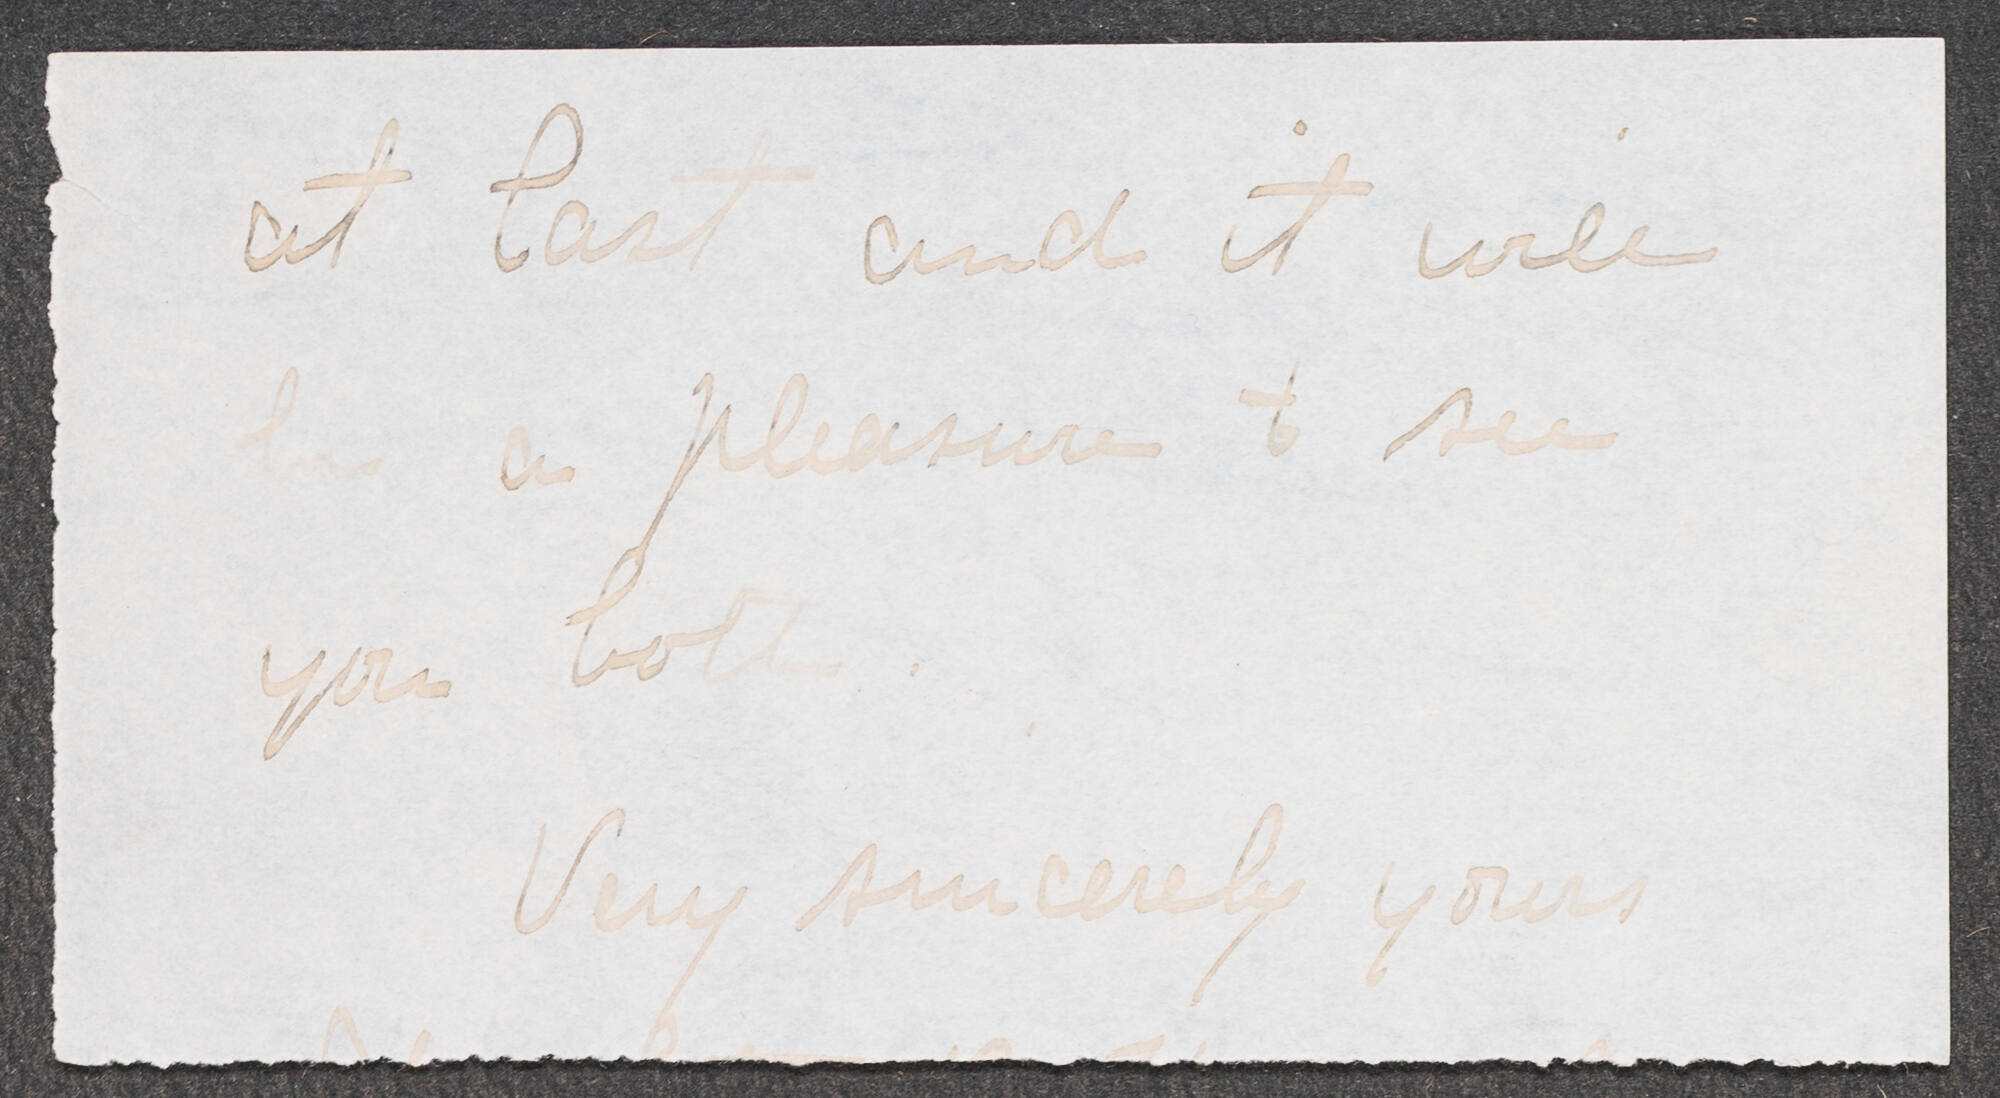 at last and it will
be a pleasure to see
you both.
Very sincerely yours